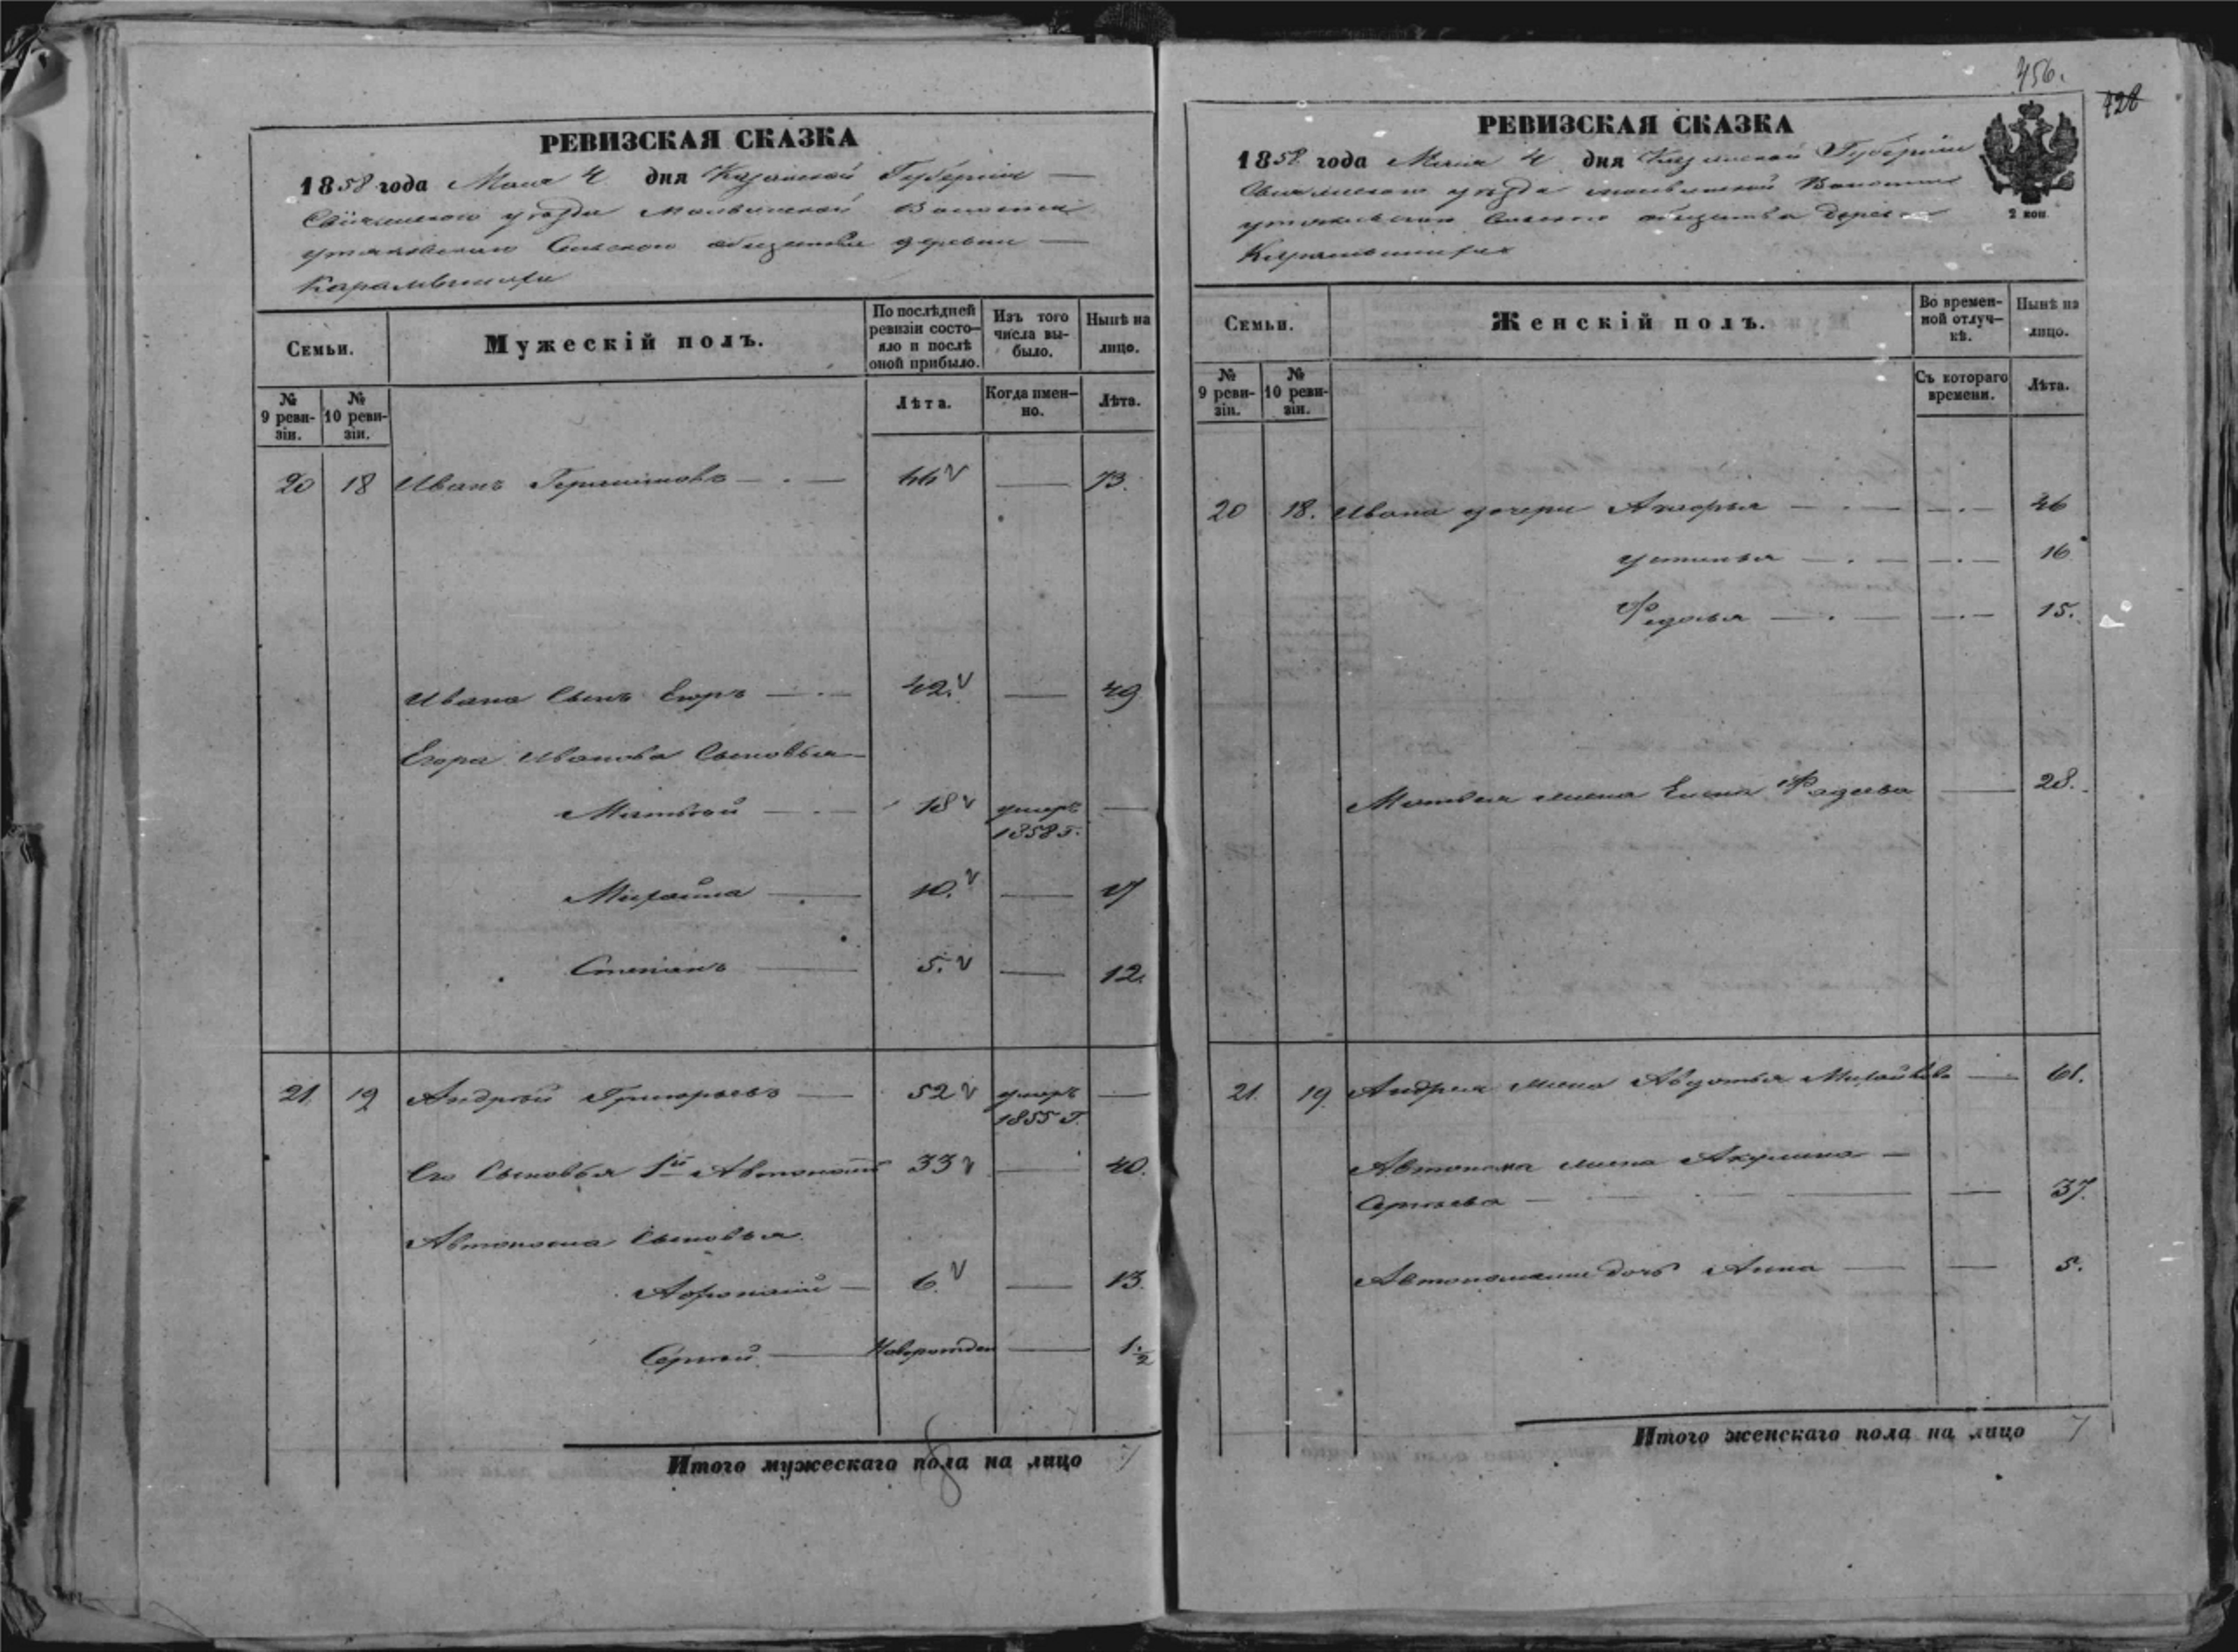 РЕВИЗСКАЯ СКАЗКА
1858 года Мая 4 дня Казанской Губернiи
уѣзда Волости
Сельского общества деревни
Семьи.
Мужескiй полъ.
По послѣдней ревизiи состо-
яло и послѣ оной прибыло.
Изъ того числа вы-
было.
Нынѣ на лицо.
№ 9 реви-
зiи.
№ 10 реви-
зiи.
Лѣта.
Когда имен-
но.
Лѣта.
20 18 Иванъ 66 73.
Ивана Сынъ Егоръ 42. 49
Егора Иванова Сыновья
Матвѣй 18 умеръ
1858 г.
Михайла 10. 17
Степанъ 5. 12.
21. 19 Андрей Григорьевъ 52 умеръ
1855 г.
Его Сыновья 1й Автономъ 33 40.
Автонома Сыновья
Афонасiй 6. 13.
Сергѣй Новорожден 1 1/2
Итого мужескаго пола на лицо 7
456.
428
РЕВИЗСКАЯ СКАЗКА
1858 года Мая 4 дня Казанской Губернiи
уѣзда Волости
Сельского общества Деревни
2 коп
Семьи.
Женскiй полъ.
Во времен-
ной отлуч-
кѣ.
Нынѣ на лицо.
№ 9 реви-
зiи.
№ 10 реви-
зiи.
Съ котораго времени.
Лѣта.
20 18. Ивана дочери 46
Устинья 16
Федосья 15.
Матвея жена Елена Фадеева 28.
21. 19 Андрея жена Авдотья Михайлова 61.
Автонома жена Акулина
Сергѣева 37.
дочь Анна 5.
Итого женскаго пола на лицо 7